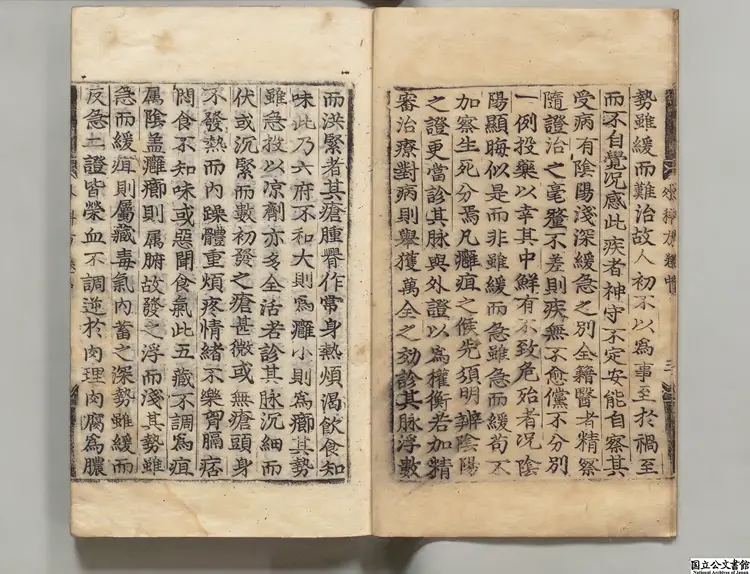 外科方卷中
三
勢雖緩而難治故人初不以爲事至於禍至
而不自覺況感此疾者神守不定安能自察其
受病有陰陽淺深緩急之別全籍醫者精察
隨證治之毫釐不差則疾無不愈儻不分別
一例投藥以幸其中鮮有不致危殆者況陰
陽顯晦似是而非雖緩而急雖急而緩苟不
加察生死分焉凡癰疽之候先須明辨陰陽
之證更當診其脉與外證以爲權衡若加精
審治療對病則舉獲萬全之効診其脉浮數
而洪緊者其瘡腫臖作常身熱煩渴飲食知
味此乃六府不和大則爲癰小則爲癤其勢
雖急投以凉劑亦多全活若診其脉沉細而
伏或沉緊而數初發之瘡甚微或無瘡頭身
不發熱而內躁體重煩疼情緒不樂胷膈痞
悶食不知味或惡聞食氣此五藏不調爲疽
属陰盖癰癤則属腑故發之浮而淺其勢雖
急而緩疽則屬藏毒氣內蓄之深勢雖緩而
反急二證皆榮血不調逆於肉理肉腐爲膿
国立公文書館
National Archives of Japan